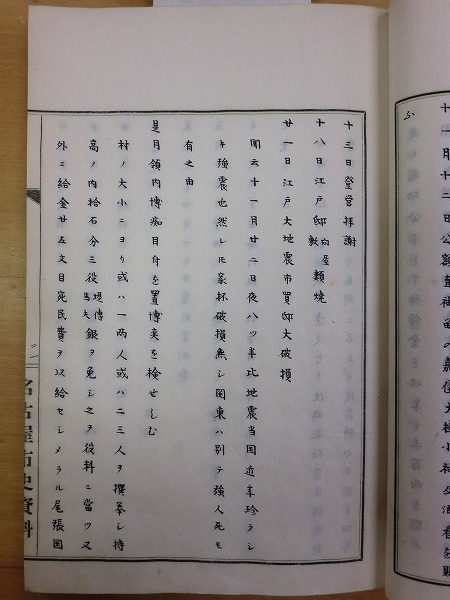 十一月十二日公
十三日登営拝謝
十八日江戸邸向屋敷類焼
廿一日江戸大地震市買邸大破損
聞云十一月廿二日夜八ツ半比地震当国近年珍ラシ
キ強震也然レ𪜈家杯破損無シ関東ハ別テ強人死モ
有之由
是月領内博痴目舟を置博奕を検せしむ
村ノ大小ニヨリ或ハ一両人或ハ二三人ヲ撰挙シ持
高ノ内拾石分三役堤伝馬夫銀ヲ免シ之ヲ役料ニ當ツ又
外ニ給金廿五文目宛民費ヲ以給セシメラル尾張国
名古屋市史資料